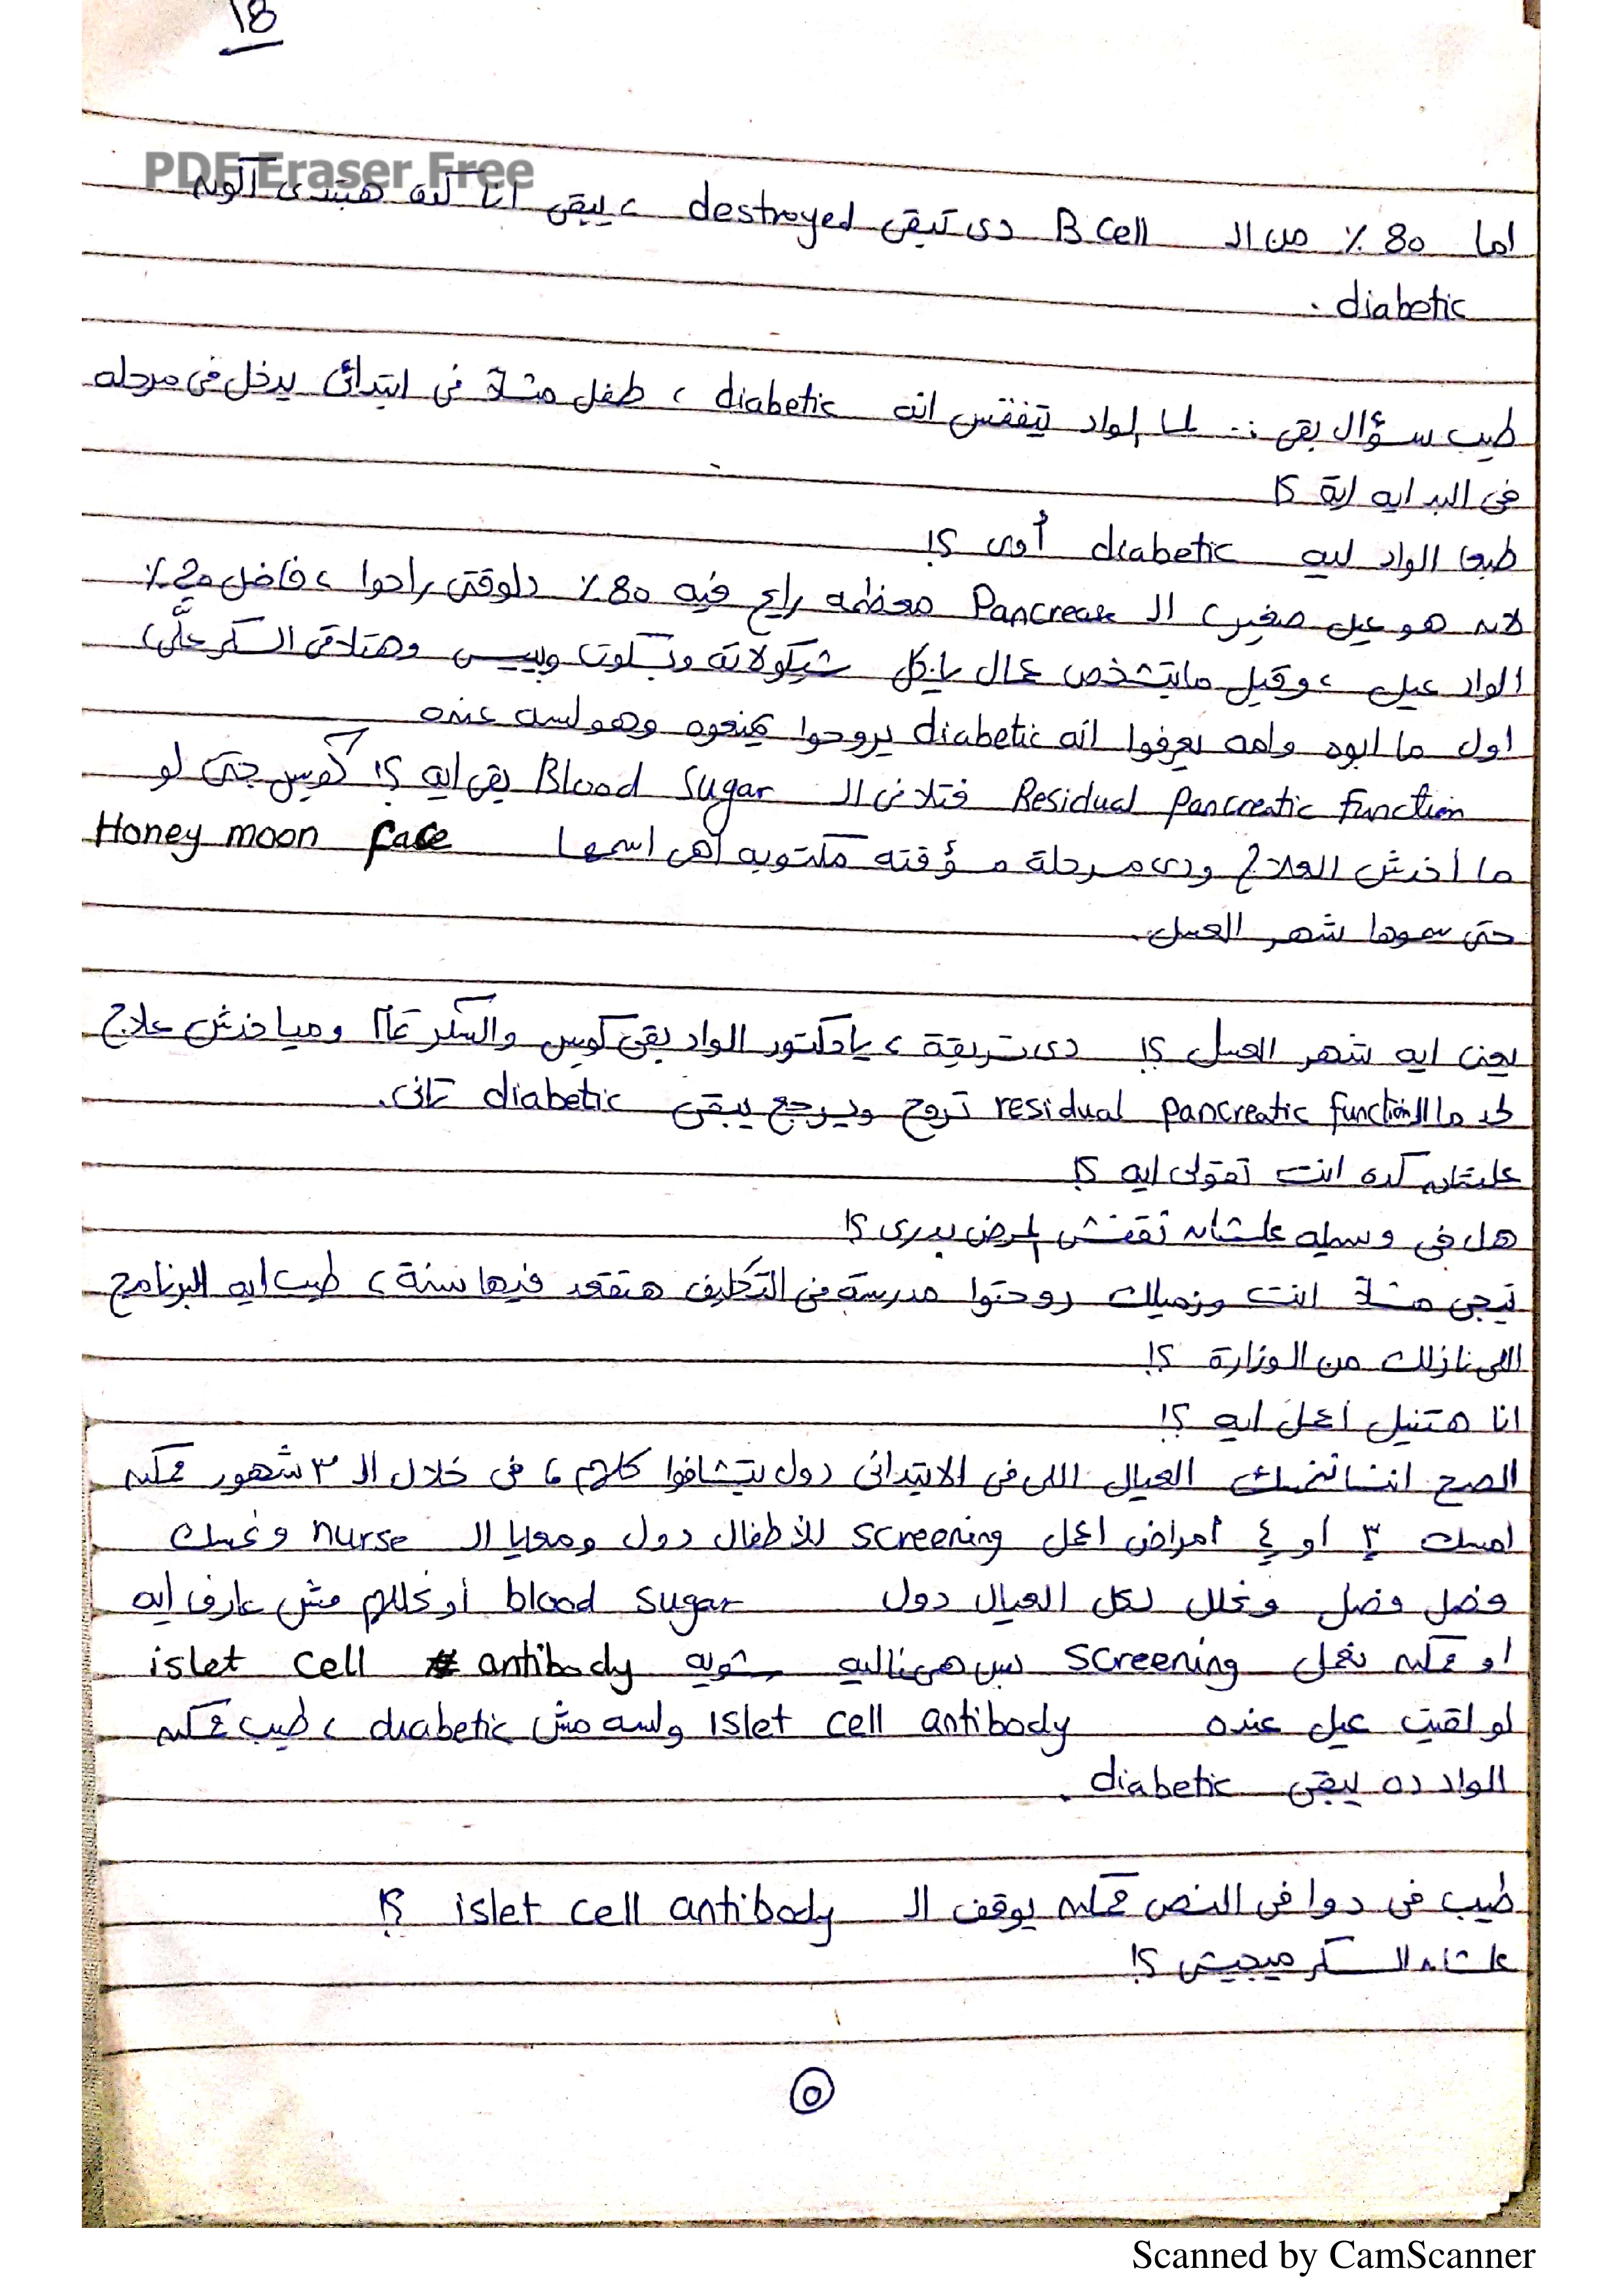 18
PDF Eraser Free
اما 80 ٪ من ال B Cell دى تبقى destroyed ، يبقى انا كده هبتدى اكون
diabetic .
طيب سؤال بقى :- لما الواد تيفقس انه diabetic ، طفل مثلاً فى ابتدائى يدخل فى مرحله
فى البدايه اية ؟!
طبعا الواد ليه diabetic أوى ؟!
لانه هو عيل صغير، ال Pancreas معظمه رايح فيه 80 ٪ دلوقتى راحوا ، فاضل 20 ٪
الواد عيل ، وقبل مايتشخص عمال ياكل شيكولاته وبسكوت وبيبس وهتلاقى السكر علَّى،
اول ما ابوه وامه يعرفوا انه diabetic يروحوا يمنعوه وهو لسه عنده
Residual Pancreatic function فتلاقى ال Blood Sugar بقى ايه ؟! كويس حتى لو
ما أخدش العلاج ودى مرحلة مؤقته مكتوبه اهى اسمها Honey moon face
حتى سموها شهر العسل.
يعنى ايه شهر العسل ؟! دى تريقة ، يا دكتور الواد بقى كويس والسكر تمام ومياخدش علاج
لحد ما ال residual pancreatic function تروح ويرجع يبقى diabetic تانى.
علشان كده انت تقولى ايه ؟!
هل فى وسيله علشان نقفش المرض بدرى ؟!
تيجى مثلاً انت وزميلك روحتوا مدرسة فى التكليف هتقعد فيها سنة ، طيب ايه البرنامج
اللى نازلك من الوزارة ؟!
انا هتنيل اعمل ايه ؟!
الصح العيال اللى فى الابتدائى دول يتشافوا كلهم ، فى خلال ال ٣ شهور ممكن
امسك ٣ أو ٤ أمراض اعمل screening للأطفال دول ومعايا ال nurse ونمسك
فصل فصل ونحلل لكل العيال دول blood sugar أو نحللهم مش عارف ايه
او ممكن نعمل screening بس هى غاليه شويه islet cell antibody
لو لقيت عيل عنده islet cell antibody ولسه مش diabetic ، طيب ممكن
الواد ده يبقى diabetic .
طيب فى دوا فى النص ممكن يوقف ال islet cell antibody ؟!
علشان السكر ميجيش ؟!
٥
Scanned by CamScanner